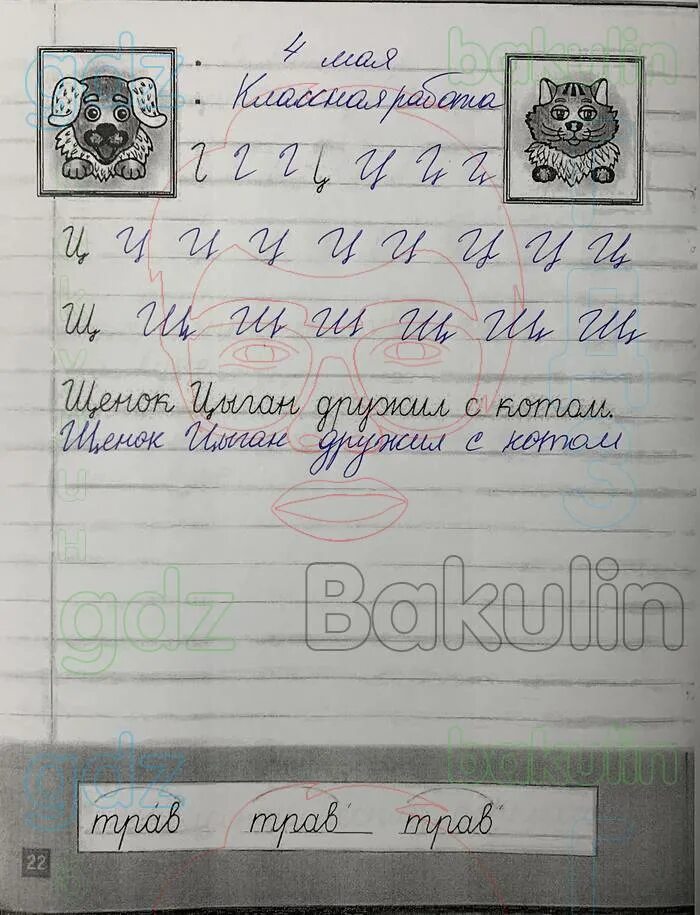 4 мая
Классная работа
Ц Ц Ц Ц Ц Ц Ц Ц Ц
Щ Щ Щ Щ Щ Щ Щ
Щенок Цыган дружил с котом.
Щенок Цыган дружил с котом
gdz Bakulin
gdz bakulin
трав трав трав
22